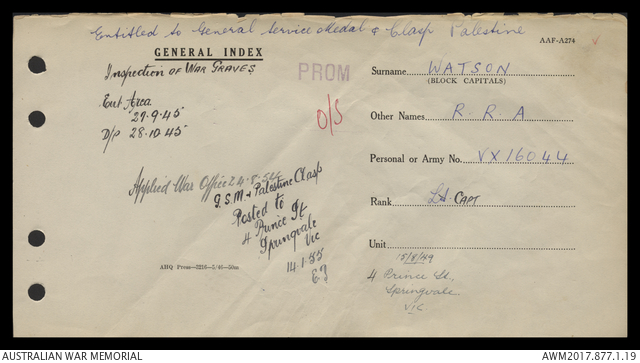 Entitled to General Service Medal & Clasp Palestine
AAF-A274
GENERAL INDEX
Inspection of War Graves
Ent Area
27.9.45
D/P 28.10.45
PROM
O/S
Surname WATSON
(BLOCK CAPITALS)
Other Names R. R A
Personal or Army No. VX16044
Rank Lt. CAPT
Unit
15/8/49
4 Prince St,
Springvale
VIC
Applied War Office 24.8.54
G.S.M & Palestine Clasp
Posted to
4 Prince St
Springvale
Vic
14.1.55
AHQ Press—3216—5/46—50m
AUSTRALIAN WAR MEMORIAL
AWM2017.877.1.19